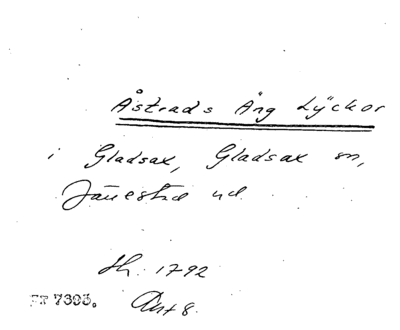 Åstrads Äng Lyckor
i Gladsax, Gladsax sn,
Järrestad
Sk. 1792
7395.
Akt 8.